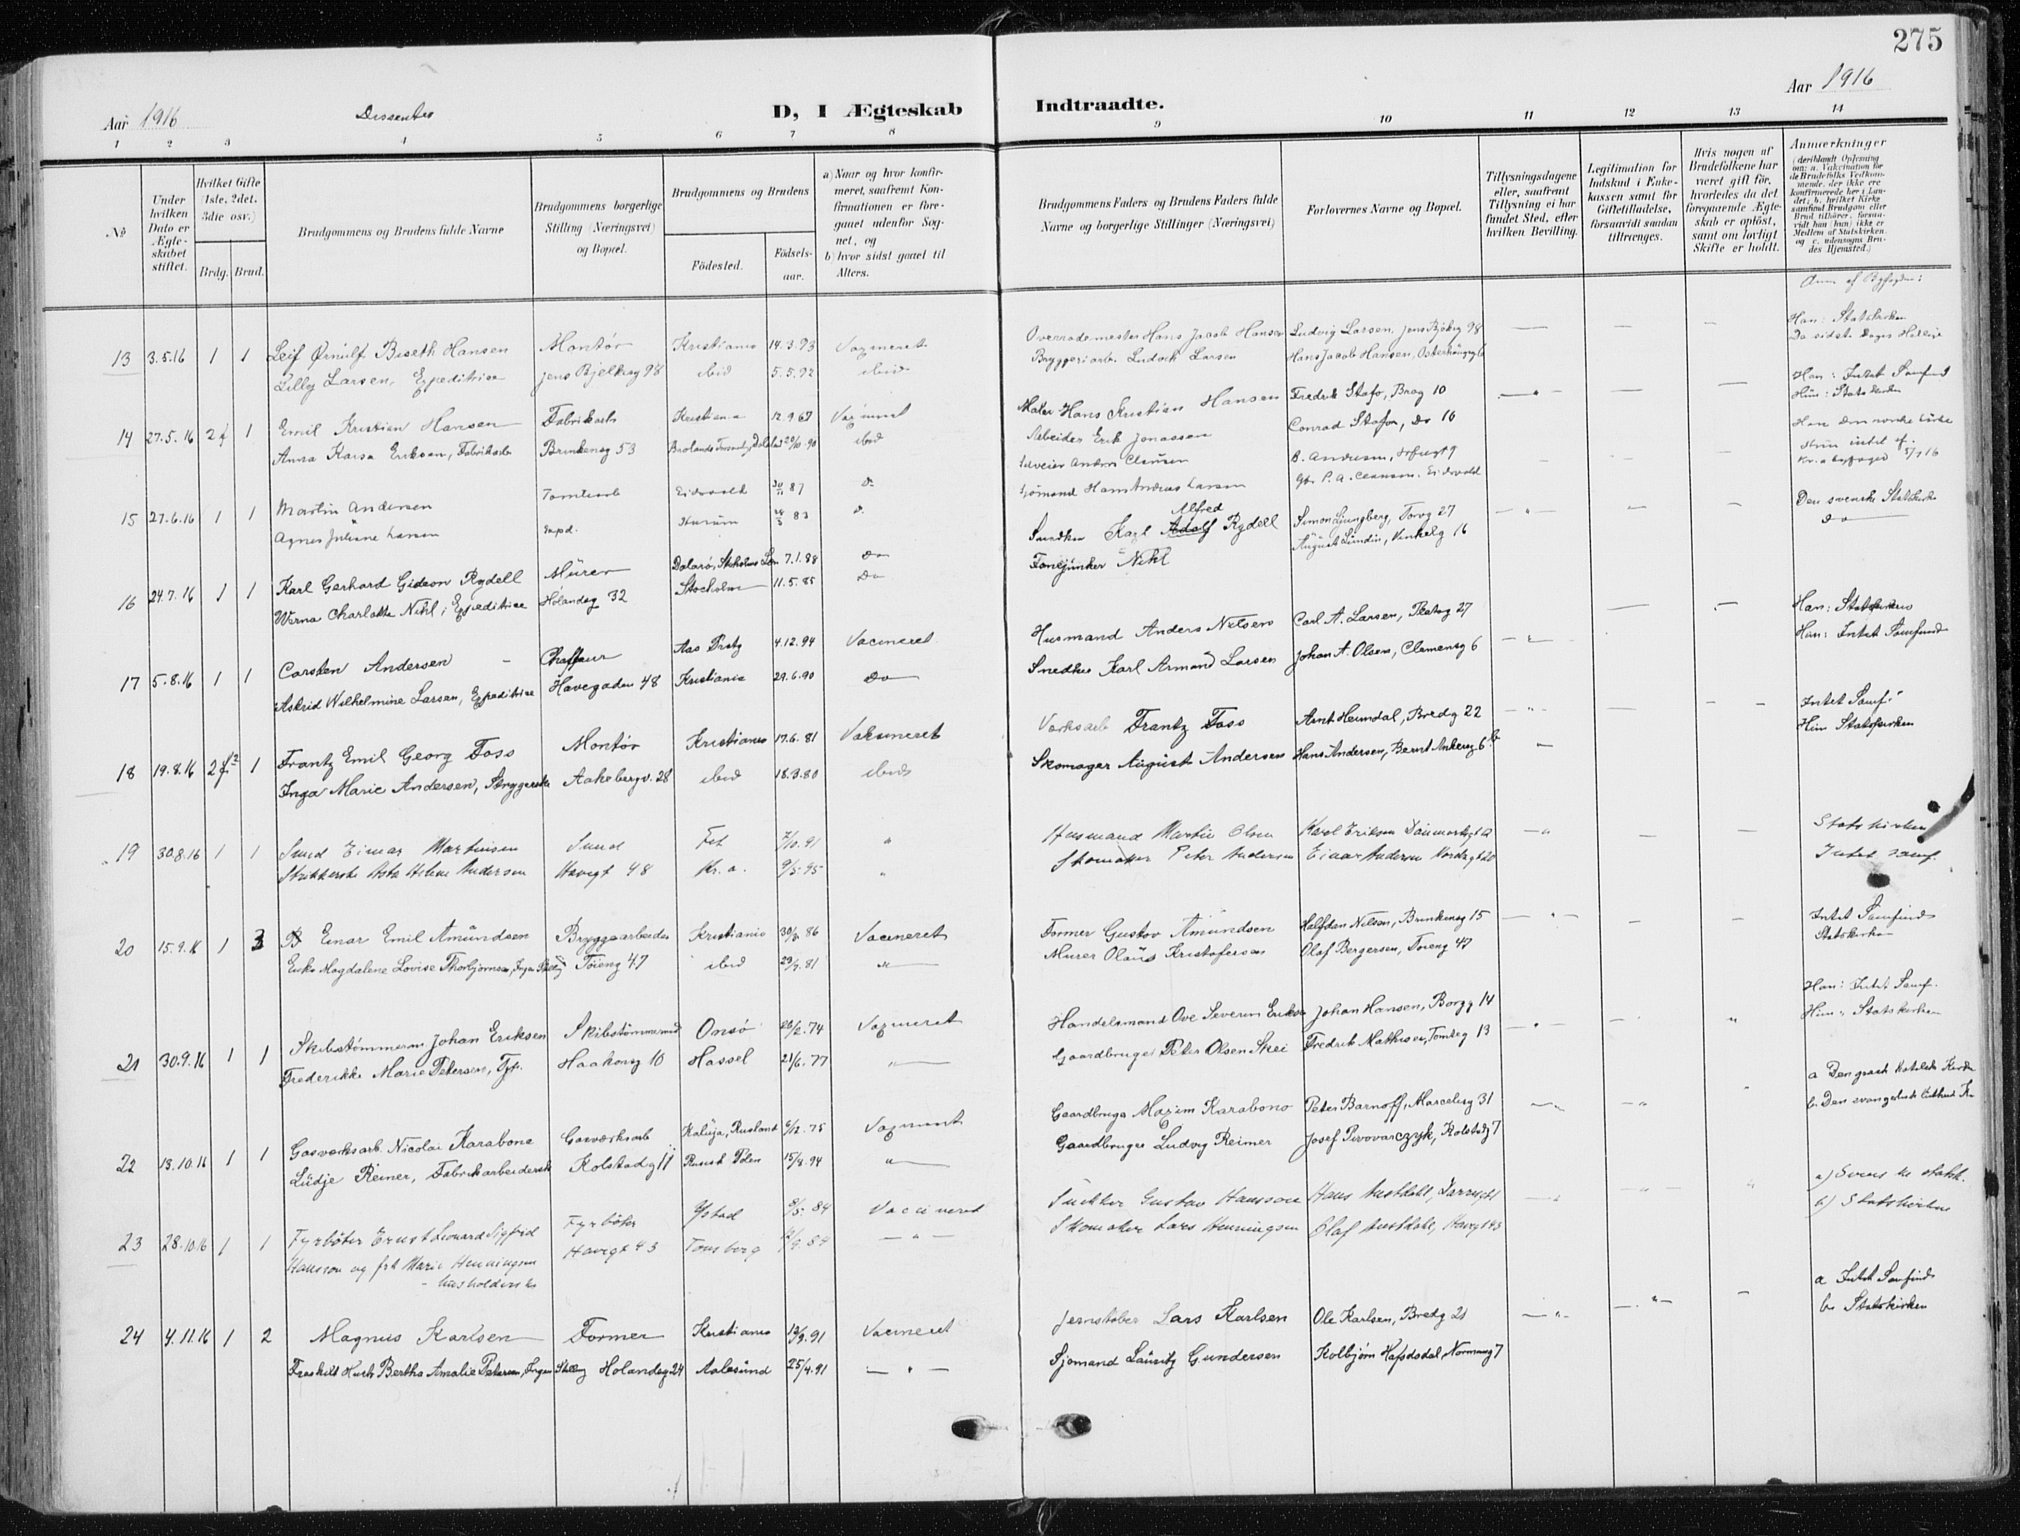 275
Aar 1916
Dissenter
D, I Ægteskab
Indtraadte.
Aar 1916
1 2 3 4 5 6 7 8 9 10 11 12 13 14
No
Under hvilken Dato er Ægteskabet stiftet.
Hvilket Gifte 1ste, 2det, 3die osv.)
Brdg. Brud.
Brudgommens og Brudens fulde Navne
Brudgommens borgerlige Stilling (Næringsvei) og Bopæl.
Brudgommens og Brudens
Fødested.
Fødselsaar.
a) Naar og hvor konfirmeret, saafremt Konfirmationen er foregaaet udenfor Sognet, og
b) hvor sidst gaaet til Alters.
Brudgommens Faders og Brudens Faders fulde Navne og borgerlige Stillinger (Næringsvei)
Forlovernes Navne og Bopæl.
Tillysningsdagene eller, saafremt Tillysning ei har fundet Sted, efter hvilken Bevilling.
Legitimation for Indskud i Enkekassen samt for Giftetilladelse, forsaavidt saadan tiltrænges.
Hvis nogen af Brudefolkene har været gift før, hvorledes da det foregaaende Ægteskab er opløst, samt om lovligt Skifte er holdt.
Anmærkninger (deriblandt Oplysning om: a. Vakcination for de Brudefolks Vedkommende, der ikke ere konfirmerede her i Landet; b. hvilket Kirkesamfund Brudgom eller Brud tilhører, forsaavidt han (hun) ikke er Medlem af Statskirken og c. udensogns Brudes Hjemsted.)
13 3.5.16 1 1 Leif Ørnulf Biseth Hansen Montør Kristiania 14.3.93 Vaxineret Hans Jacob Hansen Ludvig Larsen, Jens Bjelkeg 98 Han: Statskirken
Lilly Larsen, Expeditrice Jens Bjelkesg 98 ibid 5.5.92 ibid Bryggeriarb Ludvik Larsen Hans Jacob Hansen,
14 27.5.16 2 1 Emil Kristian Hansen Fabrikarb Kristiania 12.9.67 Vaxineret Maler Hans Kristian Hansen Fredrik Stafo, Brog 10 Han: Intet Samfund
Hun: Statskirken
Anna Kaisa Eriksen, Fabrikarb Brinkensg 53 90 ibid Arbeider Erik Jonassen Conrad Stafo, do 16
15 27.6.16 1 1 Martin Andersen Tomtearb Eidsvold 87 Anders Clausen B. Andersen,
Agnes Juliane Larsen Hurum 83 Sjømand Hans Andreas Larsen P. A. Clausen, Eidsvold
16 24.7.16 1 1 Karl Gerhard Gideon Rydell Murer Dalarö, Stokholms Len 7.1.88 Do Snedker Karl Alfred Rydell Simon Ljungberg, Torvg 27 Den svenske Statskirke
Werna Charlotta Nihl, Expeditrice Holandsg 32 Stockholm 11.5.85 Do Fanejunker Nihl August Lundin, Vinkelg 16 do
17 5.8.16 1 1 Carsten Andersen Chaffeur Aas 4.12.94 Vacineret Husmand Anders Nilsen Carl A. Larsen, 27 Han: Statskirken
Astrid Wilhelmine Larsen, Expeditrice Havegaden 48 Kristiania 29.6.90 Do Snedker Karl Armand Larsen Johan A. Olsen, Clemensg 6 Intet Samfund
18 19.8.16 2 1 Frantz Emil Georg Foss Montør Kristiania 17.6.81 Vakcineret Værksarb Frantz Foss Arnt Heimdal, Bredg 22 Intet Samf.
Inga Marie Andersen, Strygerske Aakebergv. 28 ibid 18.3.80 ibid Skomager August Andersen Hans Andersen, Bernt Ankersg 6 b Hun Statskirken
19 30.8.16 1 1 Smed Einar Martinsen Smed Fet 7/10.91 " Husmand Martin Olsen Karl Eriksen Danmarksgt Statskirken
Strikkerske Asta Helene Andersen Havegt 48 Kr.a. 9/5.95 " Skomaker Peter Andersen Einar Andersen Nordregt 20 Intet samf.
20 15.9.16 1 3 Einar Emil Amundsen Bryggearbeider Kristiania 30/8.86 Vacineret Former Gustav Amundsen Halfdan Nilsen, Brinkensg 15 Intet Samfund
Enke Magdalene Lovise Thorbjørnsen, Ingen Stilling Tøieng 47 ibid 29/7.81 " Murer Olaüs Kristofersen Olaf Bergersen, Tøieng 47 Statskirken
21 30.9.16 1 1 Skibstømmerm Johan Eriksen Skibstømmermd Onsø 20/2.74 Vaxineret Handelsmand Ove Severin Eriksen Johan Hansen, Borgg 14 Han: Intet Samf.
Frederikke Marie Petersen, Tjp. Haakonsg 10 Hassel 21/6.77 " Gaardbruger Peter Olsen Skei Fredrik Mathisen, Tomteg 13 Hun: Statskirken
22 13.10.16 1 1 Gasverksarb. Nicolai Karabone Gasværksarb Kaluja, Rusland 75 Vaxineret Gaardbruger Maxim Karabono Peter Barnoff, Marcelisg 31 a Den græsk katolske Kirke
Lüdje Reimer, Fabrikarbeiderske Kolstadg 11 Russisk Polen 15/8.94 " Gaardbruger Ludvig Reimer Josef Pivovarczyk, Kolstadg 7 b Den evangelisk
23 28.10.16 1 1 Fyrbøter Ernst Leonard Sigfrid Fyrbøter Ystad 84 Vaccineret Snekker Gustav Hansson Hans a) Svenske statsk.
Hansson og frk Marie Henningsen Havegt 43 Tønsberg 84 " Skomaker Lars Henningsen Olaf b) Statskirken
husholderske
24 4.11.16 1 2 Magnus Karlsen Former Kristiania 13/9.91 Vacineret Jernstøber Lars Karlsen Ole Karlsen, Bredg 21 a Intet Samfund
Fraskilt Hustr. Bertha Amalie Petersen, Ingen Stilling Holandsg 24 Aalesund 25/4.91 " Sjømand Lauritz Gundersen Kolbjørn Hafsdsdal, Normang 7 b Statskirken